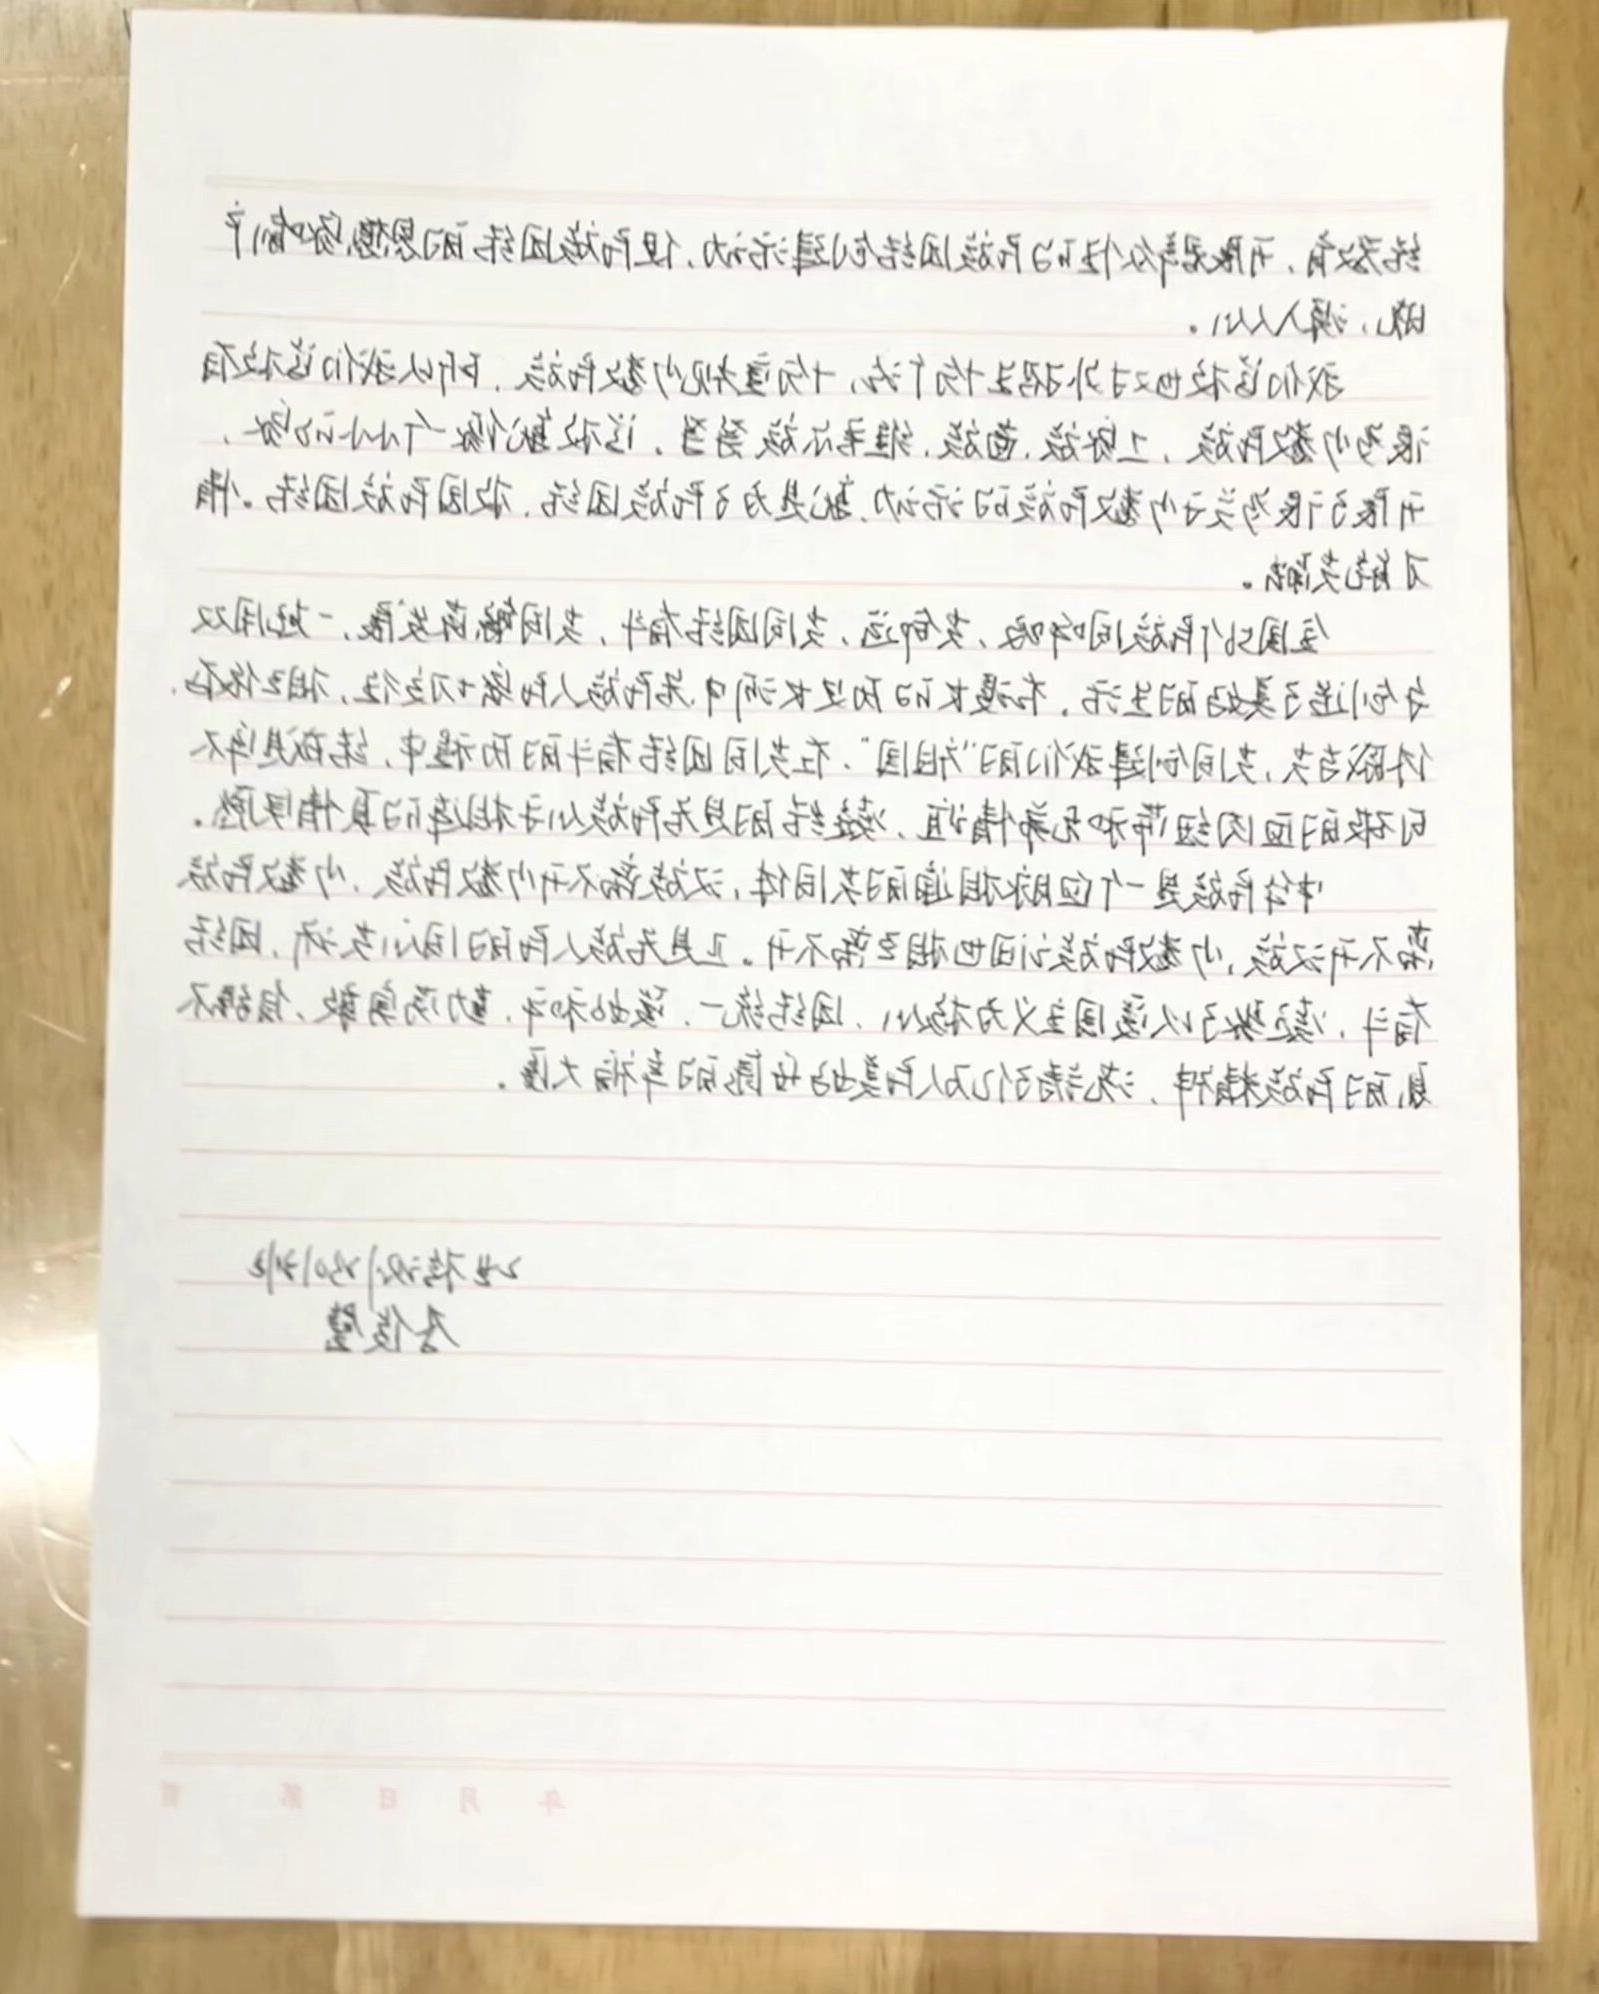 结教育，开展署众性的民族团结创建活动，使民族团结的思想家喻户
晓，深入人心。
我们学校也对外招生十好几个省，十分重视少数民族，所以我们学校有
很多少数民族，土家族，苗族，维吾尔族等等，学校就像一个小小的家，
开展了很多关于少数民族的活动，就是为了民族团结，祖国民族团结。情
才能完美融洽。
全国56个民族同呼吸、共命运、共同团结奋斗，共同繁荣发展，一起用双
手创造了美好的生活。在漫长的历史长河中，各民族人民密切交往，相互依存，
休戚与共，共同创建我们的"方祖国"，在共同团结奋斗的历程中，结成牢不
可破的血肉纽带和兄弟情谊，凝结的是各民族心手相连的真情厚意。
中华民族是一个血脉相通的共同体，汉族离不开少数民族，少数民族
离不开汉族，少数民族之间也相互离不开。正是各族人民的同心共济，团结
奋斗，凝聚了以爱国主义为核心，团结统一，爱好和平，勤劳勇敢，自强不
息的民族精神，浇铸了亿万人民美好信念的幸福大厦。
年 月 日 第 页